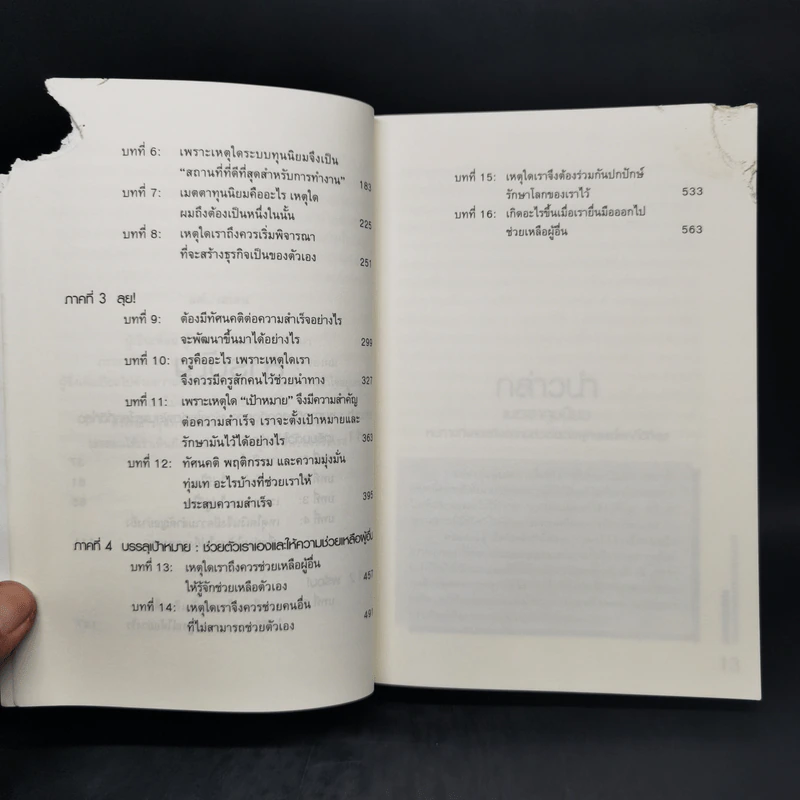 บทที่ 6: เพราะเหตุใดระบบทุนนิยมจึงเป็น
"สถานที่ที่ดีที่สุดสำหรับการทำงาน" 183
บทที่ 7: เมตตาทุนนิยมคืออะไร เหตุใด
ผมถึงต้องเป็นหนึ่งในนั้น 225
บทที่ 8: เหตุใดเราถึงควรเริ่มพิจารณา
ที่จะสร้างธุรกิจเป็นของตัวเอง 251
ภาคที่ 3 ลุย!
บทที่ 9: ต้องมีทัศนคติต่อความสำเร็จอย่างไร
จะพัฒนาขึ้นมาได้อย่างไร 299
บทที่ 10: ครูคืออะไร เพราะเหตุใดเรา
จึงควรมีครูสักคนไว้ช่วยนำทาง 327
บทที่ 11: เพราะเหตุใด "เป้าหมาย" จึงมีความสำคัญ
ต่อความสำเร็จ เราจะตั้งเป้าหมายและ
รักษามันไว้ได้อย่างไร 363
บทที่ 12: ทัศนคติ พฤติกรรม และความมุ่งมั่น
ทุ่มเท อะไรบ้างที่ช่วยเราให้
ประสบความสำเร็จ 395
ภาคที่ 4 บรรลุเป้าหมาย : ช่วยตัวเราเองและให้ความช่วยเหลือผู้อื่น
บทที่ 13: เหตุใดเราถึงควรช่วยเหลือผู้อื่น
ให้รู้จักช่วยเหลือตัวเอง 457
บทที่ 14: เหตุใดเราจึงควรช่วยคนอื่น
ที่ไม่สามารถช่วยตัวเอง
บทที่ 15: เหตุใดเราจึงต้องร่วมกันปกปักษ์
รักษาโลกของเราไว้ 533
บทที่ 16: เกิดอะไรขึ้นเมื่อเรายื่นมือออกไป
ช่วยเหลือผู้อื่น 563